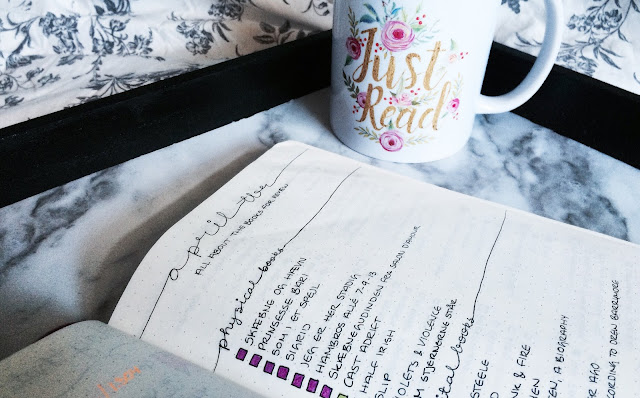 Just
Read
april tbr
ALL ABOUT THE BOOKS FOR REVIEW
physical books
SKÆBNE OG HÆVN
PRINSESSE BARI
SOM I ET SPEJL
SIGRID
JEG ER HER STADIG
HAMBROS ALLÉ 7-9-13
SKÆBNEGUDINDEN FOR
CAST ADRIFT
HALF IRISH
SLIP
VIOLETS & VIOLENCE
STJERNEDRYS STAR
books
STEELE
& FIRE
A BIOGRAPHY
AGO
ACCORDING TO DREW BARRYMORE